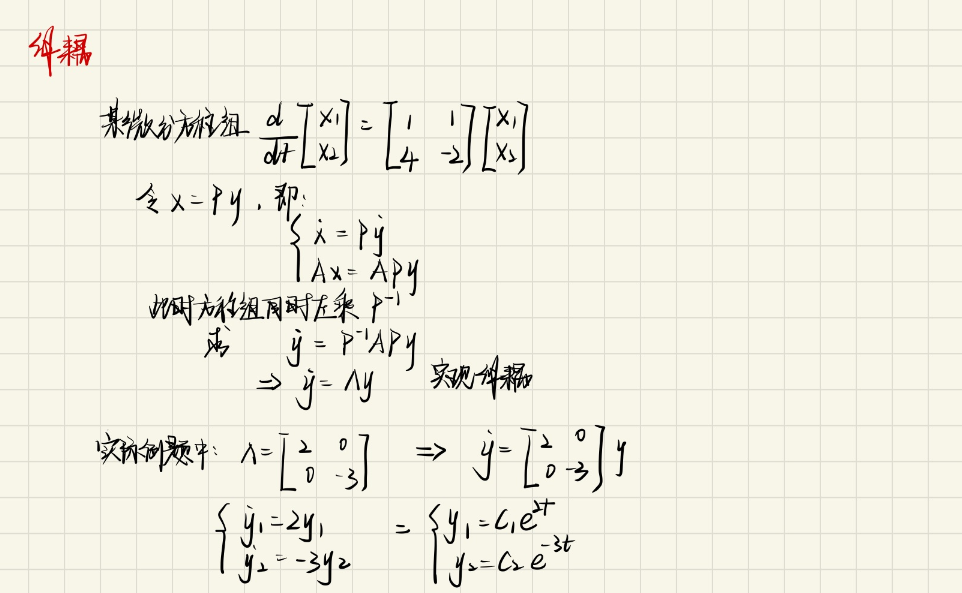 解耦
某微分方程组 d/dt [x₁ x₂] = [1 1; 4 -2] [x₁ x₂]
令 x = Py , 即:
{ ẋ = Pẏ
Ax = APy
此时方程组同时左乘 P⁻¹
求 ẏ = P⁻¹APy
⇒ ẏ = Λy 实现解耦
实际例题中: Λ = [2 0; 0 -3] ⇒ ẏ = [2 0; 0 -3] y
{ ẏ₁ = 2y₁ = { y₁ = C₁e^{2t}
ẏ₂ = -3y₂ y₂ = C₂e^{-3t}